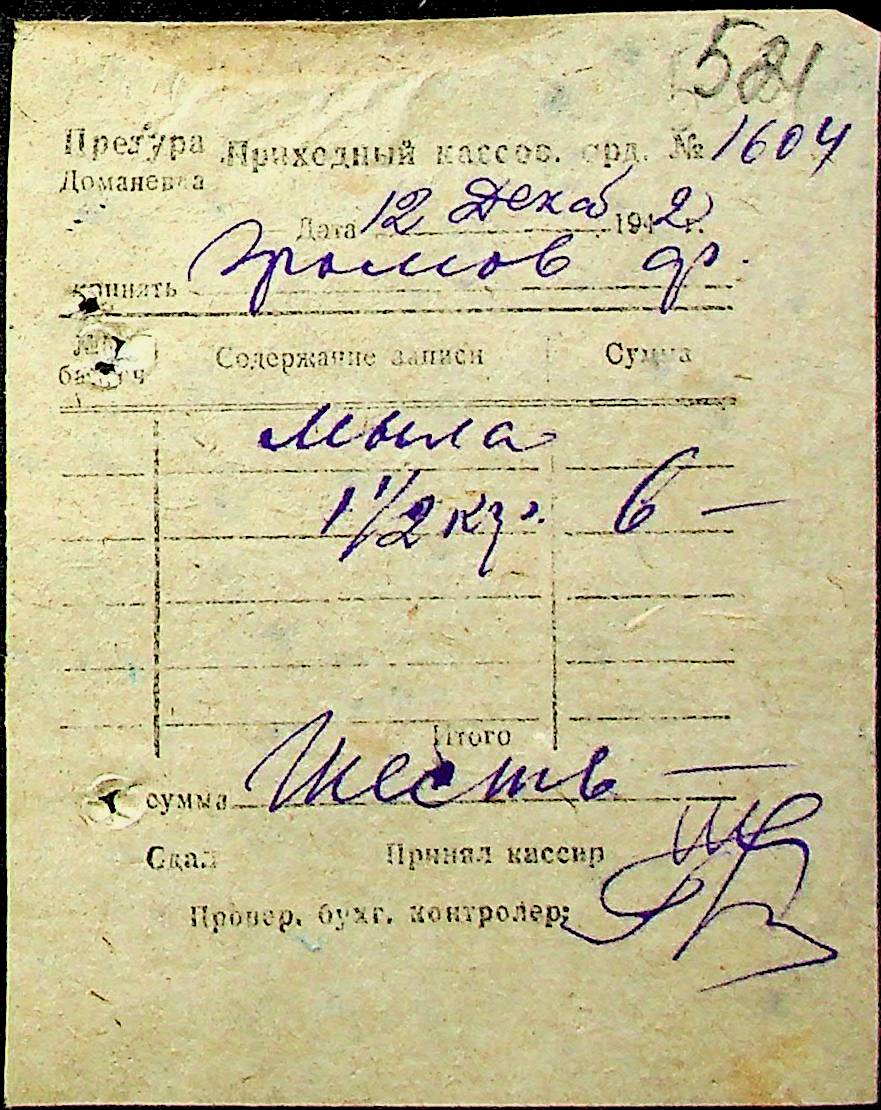 581
Претура Приходный кассов. орд. № 1604
Доманевка
Дата 12 Декаб 1942 г.
принять Громов ф.
№№ Содержание записи Сумма
мыла
1 1/2 кгр. 6 —
Итого
сумма Шесть —
Сдал Принял кассир
Провер. бухг. контролер: